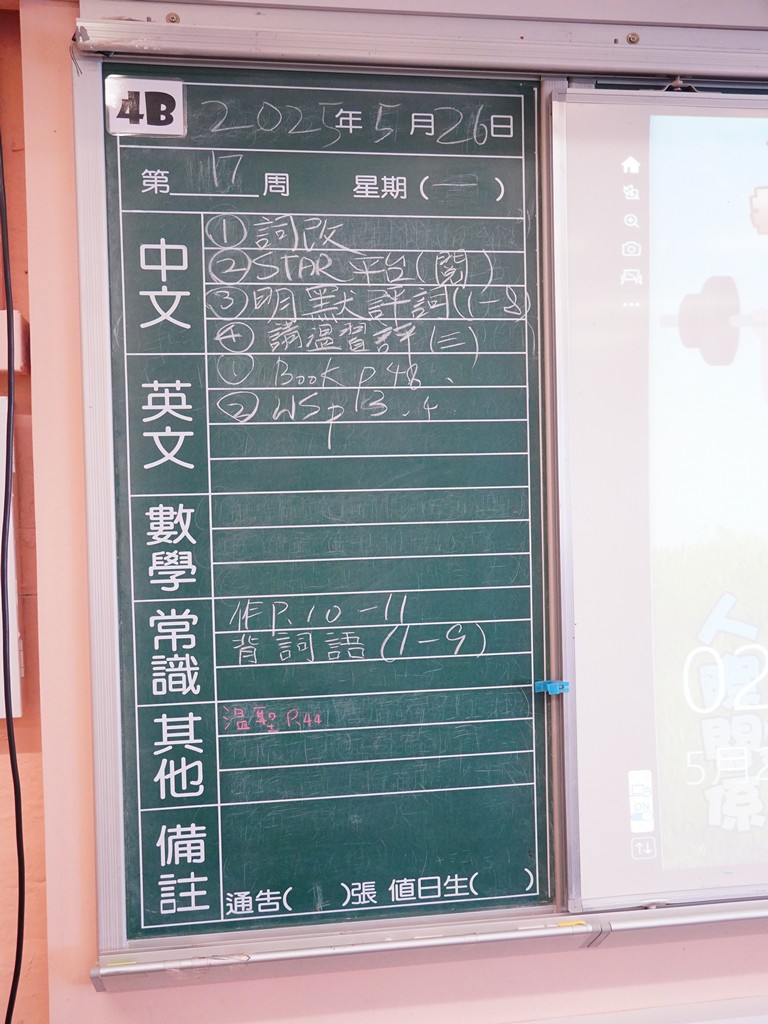 4B 2025年5月26日
第17周 星期(一)
中文
① 詞改
② STAR平台(閱)
③ 明默評詞(1-8)
④ 請溫習評(三)
英文
① Book p48、
② WS p13.4
數學
常識
作P.10-11
背詞語(1-9)
其他
溫聖P.44
備註
通告( )張 值日生( )
人
02
5月2
係
ON